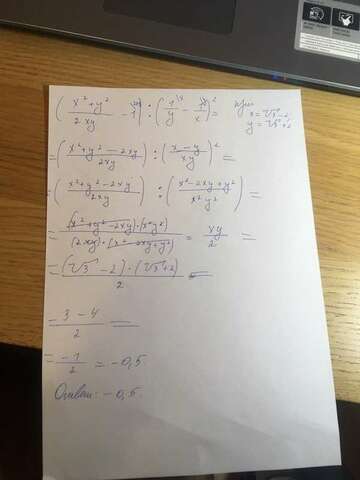 ( x² + y² / 2xy - 1 ) : ( 1 / y - 1 / x )² = при x = √3 - 2, y = √3 + 2
= ( x² + y² - 2xy / 2xy ) : ( x - y / xy )² =
= ( x² + y² - 2xy / 2xy ) : ( x² - 2xy + y² / x² y² ) =
= (x² + y² - 2xy) · (x² y²) / (2xy) · (x² - 2xy + y²) = xy / 2 =
= (√3 - 2) · (√3 + 2) / 2 =
3 - 4 / 2 =
= -1 / 2 = -0,5
Ответ: -0,5.